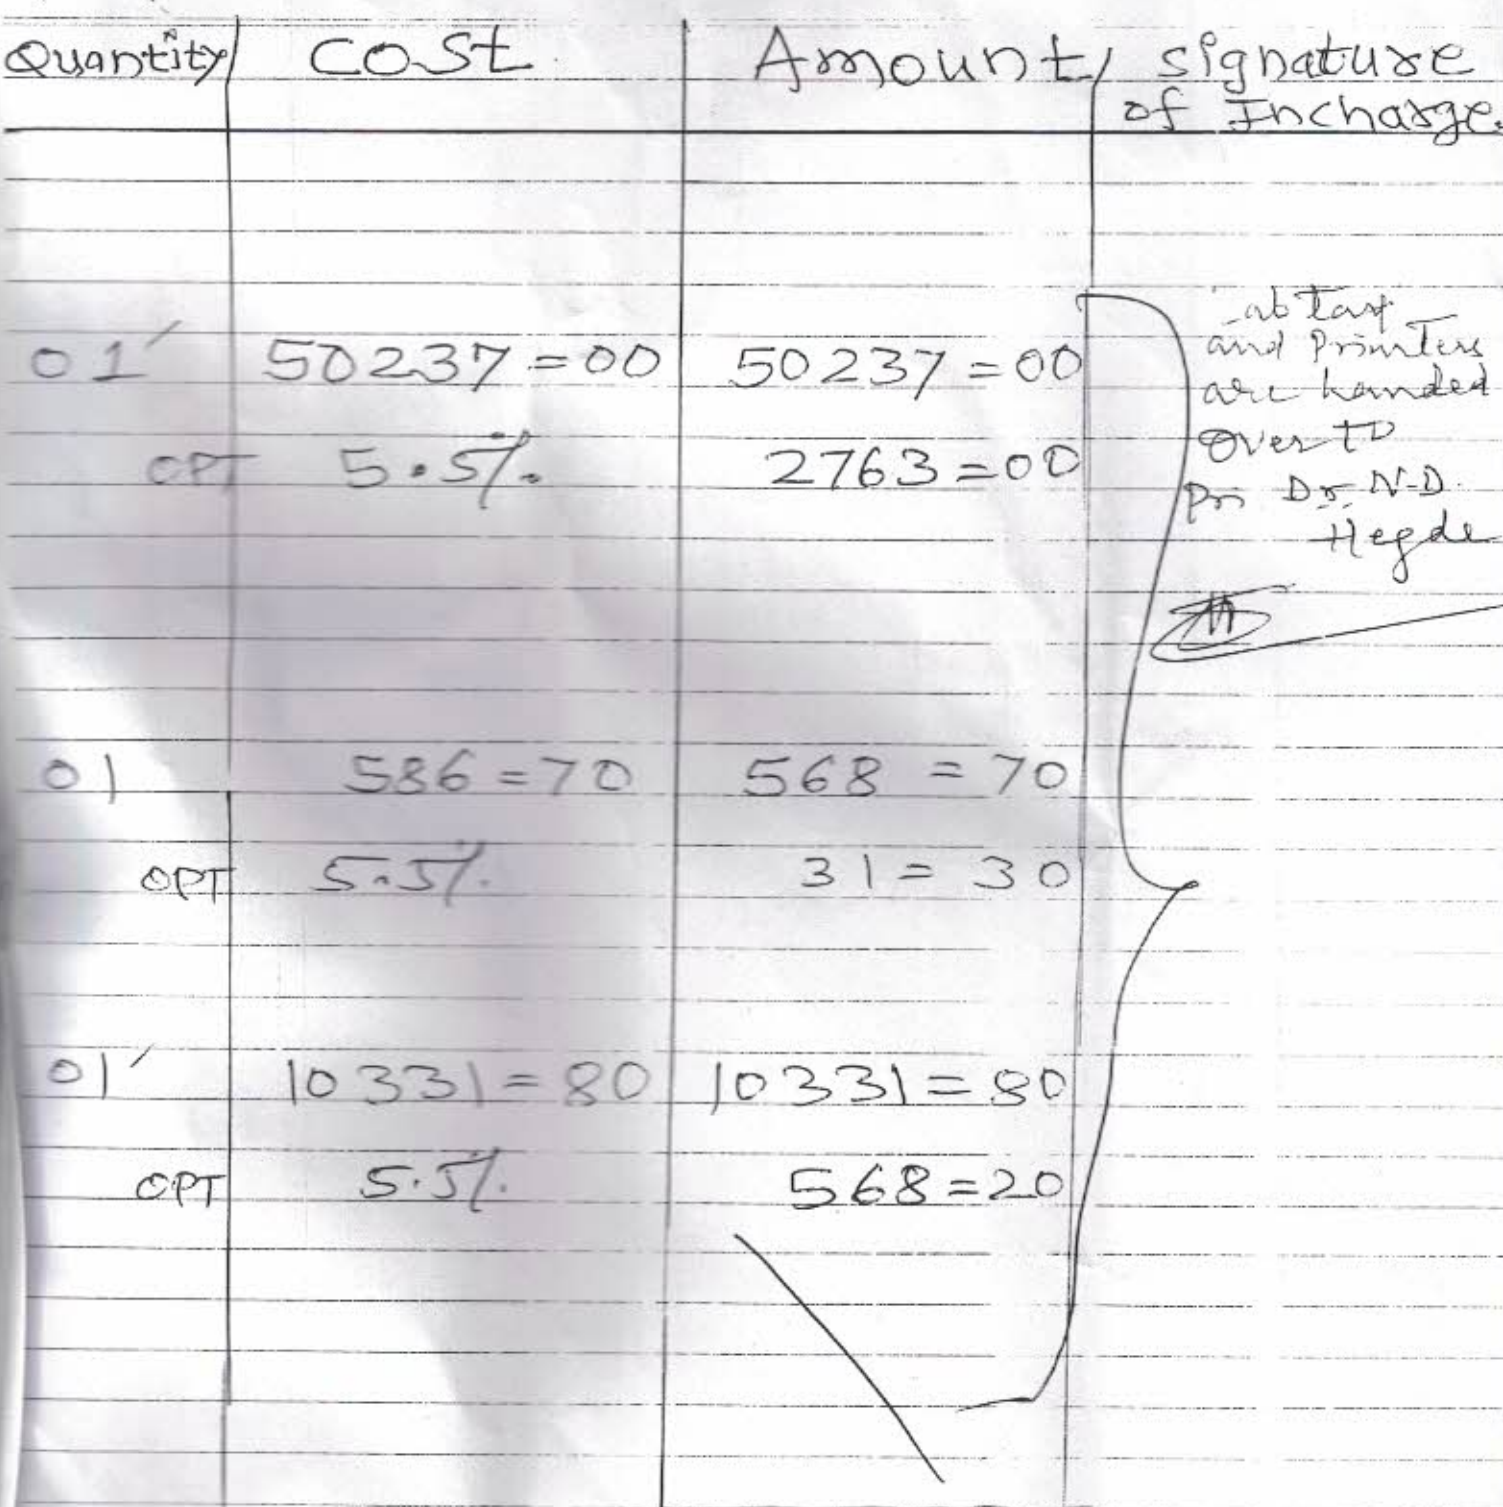 Quantity Cost Amount Signature
of Incharge.
01 50237=00 50237=00
OPT 5.5% 2763=00
and Printers
are handed
over to
Pri Dr N-D.
Hegde
01 586=70 568=70
OPT 5.5% 31=30
01 10331=80 10331=80
OPT 5.5% 568=20